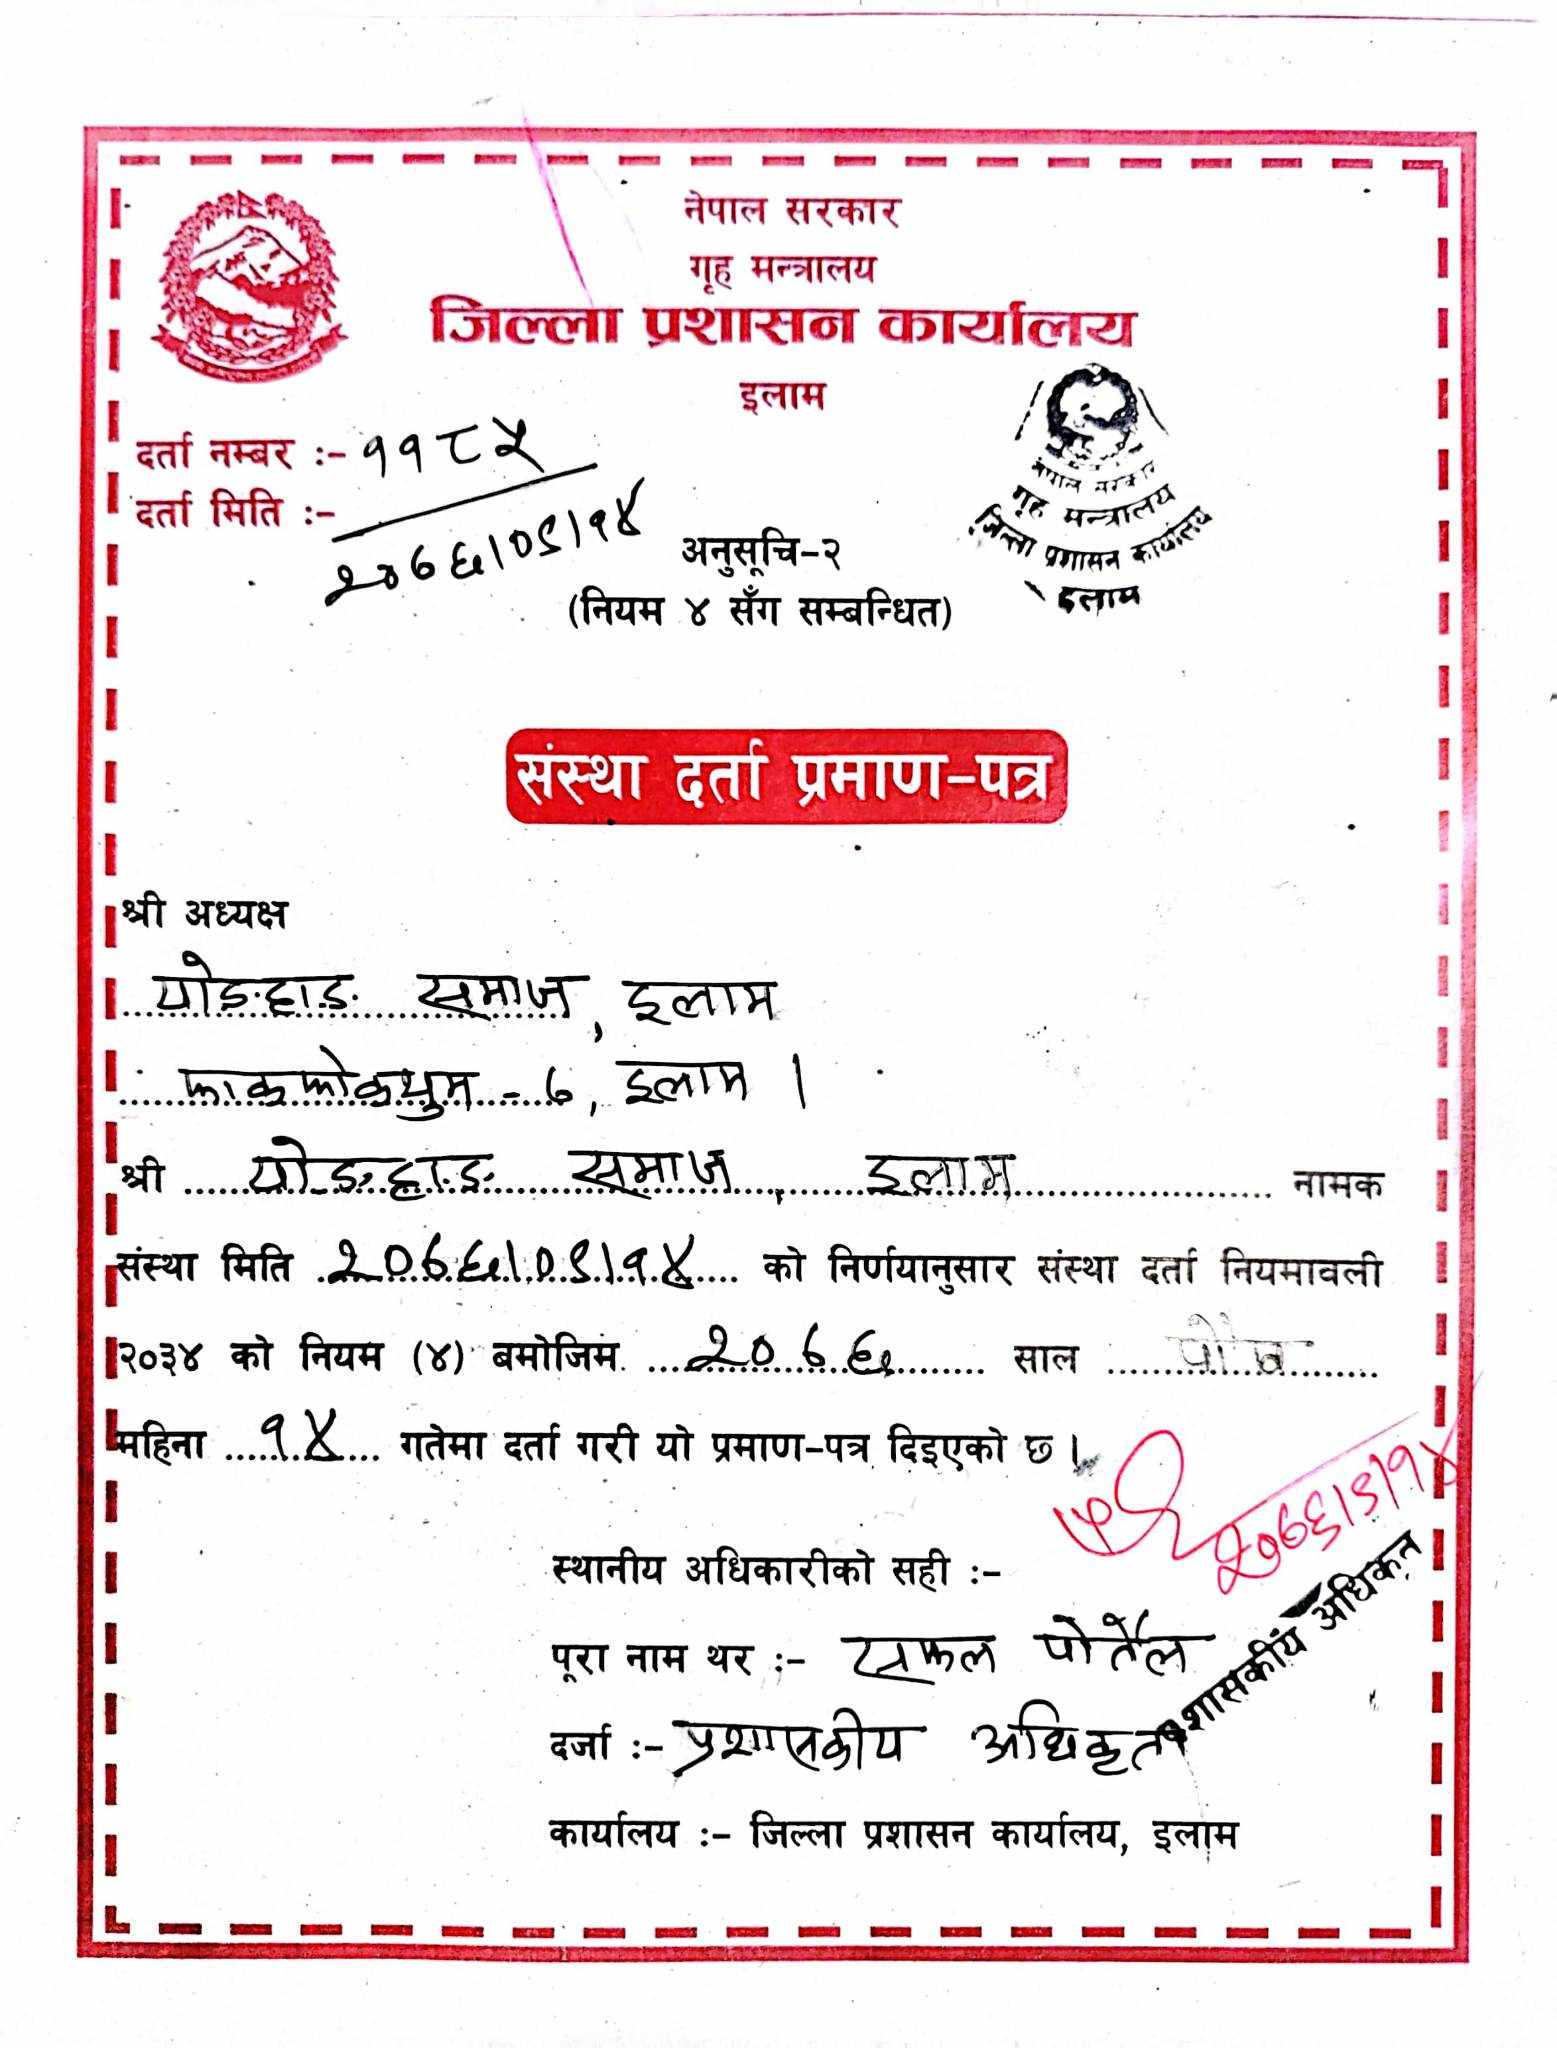 नेपाल सरकार
गृह मन्त्रालय
जिल्ला प्रशासन कार्यालय
इलाम
दर्ता नम्बर :- ११८५
दर्ता मिति :- २०७६।०९।१४
नेपाल सरकार
गृह मन्त्रालय
जिल्ला प्रशासन कार्यालय
इलाम
अनुसूचि-२
(नियम ४ सँग सम्बन्धित)
संस्था दर्ता प्रमाण-पत्र
श्री अध्यक्ष
योङहाङ समाज, इलाम
फाकफोकथुम - ७, इलाम ।
श्री योङहाङ समाज, इलाम नामक
संस्था मिति २०७६।०९।१४ को निर्णयानुसार संस्था दर्ता नियमावली
२०३४ को नियम (४) बमोजिम २०७६ साल पौष
महिना १४ गतेमा दर्ता गरी यो प्रमाण-पत्र दिइएको छ ।
२०७६।९।१४
स्थानीय अधिकारीको सही :-
पूरा नाम थर :- सफल पोर्तेल
दर्जा :- प्रशासकीय अधिकृत
प्रशासकीय अधिकृत
कार्यालय :- जिल्ला प्रशासन कार्यालय, इलाम